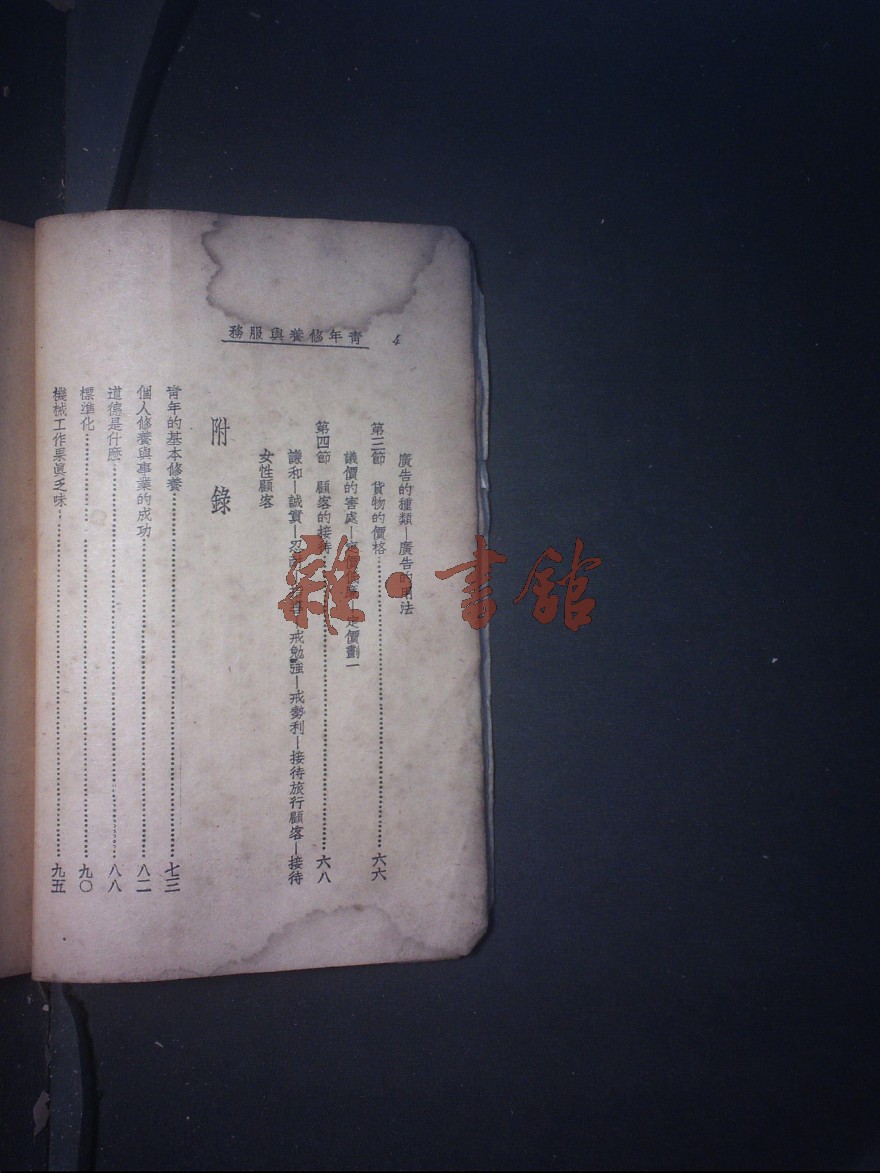 4
務服與養修年青
廣告的種類—廣告的用法
第三節 貨物的價格 六六
議價的害處—定價劃一
第四節 顧客的接待 六八
謙和—誠實—忍 戒勉強—戒勢利—接待旅行顧客—接待
女性顧客
附錄
青年的基本修養 七三
個人修養與事業的成功 八二
道德是什麽 八八
標準化 九〇
機械工作果眞乏味 九五
雜·書館